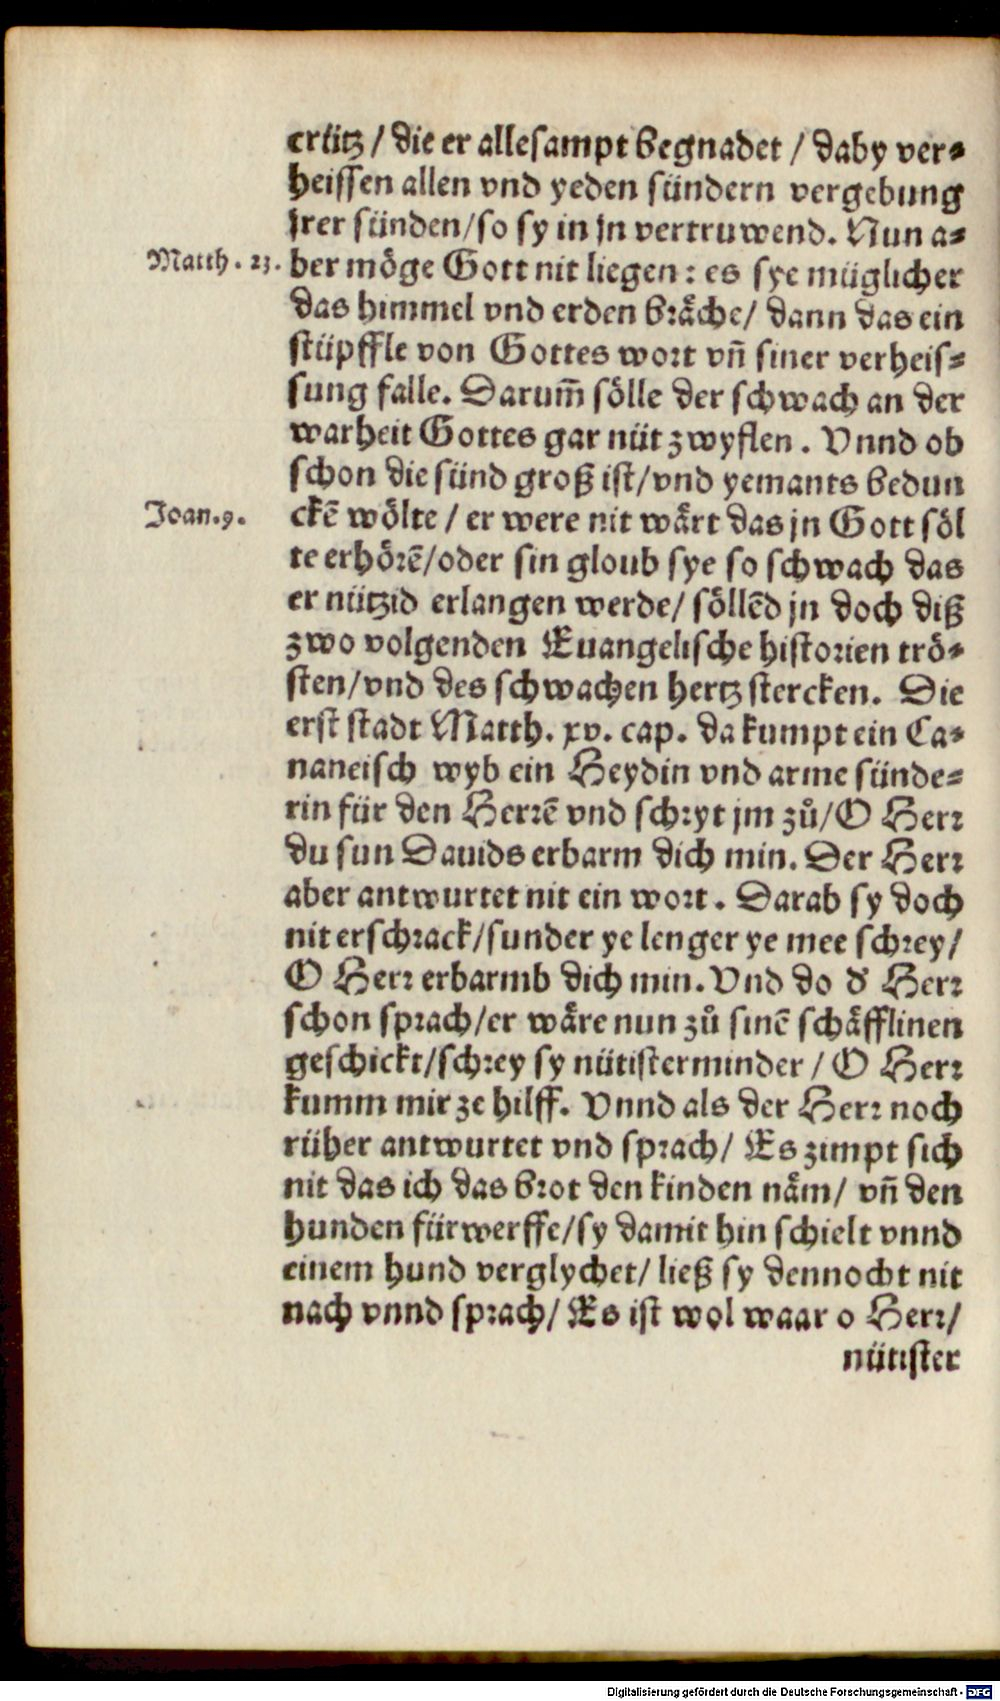 crütz / die er allesampt begnadet / daby ver⸗
heissen allen vnd yeden sündern vergebung
jrer sünden/so sy in jn vertruwend. Nun a⸗
Matth. 23. ber möge Gott nit liegen: es sye müglicher
das himmel vnd erden bräche/ dann das ein
stüpffle von Gottes wort vñ siner verheis⸗
sung falle. Darum̄ sölle der schwach an der
warheit Gottes gar nüt zwyflen. Vnnd ob
schon die sünd groß ist/vnd yemants bedun
Joan.9. ckē wölte / er were nit wärt das jn Gott söl
te erhörē/oder sin gloub sye so schwach das
er nützid erlangen werde/ söllēd jn doch diß
zwo volgenden Euangelische historien trö⸗
sten/vnd des schwachen hertz stercken. Die
erst stadt Matth. xv. cap. da kumpt ein Ca⸗
naneisch wyb ein Heydin vnd arme sünde⸗
rin für den Herrē vnd schryt jm zů/O Herr
du sun Dauids erbarm dich min. Der Herr
aber antwurtet nit ein wort. Darab sy doch
nit erschrack/sunder ye lenger ye mee schrey/
O Herr erbarmb dich min. Vnd do d' Herr
schon sprach/er wäre nun zů sinē schäfflinen
geschickt/schrey sy nütisterminder / O Herr
kumm mir ze hilff. Vnnd als der Herr noch
rüher antwurtet vnd sprach/ Es zimpt sich
nit das ich das brot den kinden näm/ vñ den
hunden fürwerffe/sy damit hin schielt vnnd
einem hund verglychet/ ließ sy dennocht nit
nach vnnd sprach/ Es ist wol waar o Herr/
nütister
Digitalisierung gefördert durch die Deutsche Forschungsgemeinschaft - DFG